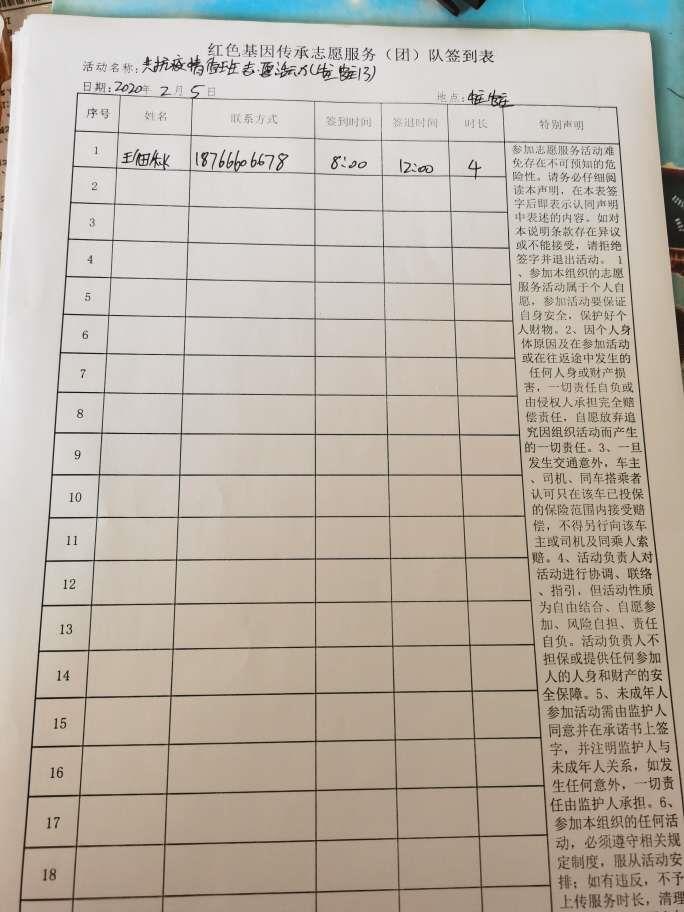 红色基因传承志愿服务（团）队签到表
活动名称:共抗疫情
日期:2020年 2月 5日 地点:
序号 姓名 联系方式 签到时间 签退时间 时长 特别声明
1 18766606678 8:00 12:00 4
2
3
4
5
6
7
8
9
10
11
12
13
14
15
16
17
18
参加志愿服务活动难
免存在不可预知的危
险性。请务必仔细阅
读本声明，在本表签
字后即表示认同声明
中表述的内容。如对
本说明条款存在异议
或不能接受，请拒绝
签字并退出活动。 1
、参加本组织的志愿
服务活动属于个人自
愿，参加活动要保证
自身安全，保护好个
人财物。2、因个人身
体原因及在参加活动
或在往返途中发生的
任何人身或财产损
害，一切责任自负或
由侵权人承担完全赔
偿责任，自愿放弃追
究因组织活动而产生
的一切责任。3、一旦
发生交通意外，车主
、司机、同车搭乘者
认可只在该车已投保
的保险范围内接受赔
偿，不得另行向该车
主或司机及同乘人索
赔。4、活动负责人对
活动进行协调、联络
、指引，但活动性质
为自由结合、自愿参
加、风险自担、责任
自负。活动负责人不
担保或提供任何参加
人的人身和财产的安
全保障。5、未成年人
参加活动需由监护人
同意并在承诺书上签
字，并注明监护人与
未成年人关系，如发
生任何意外，一切责
任由监护人承担。6、
参加本组织的任何活
动，必须遵守相关规
定制度，服从活动安
排；如有违反，不予
上传服务时长，清理